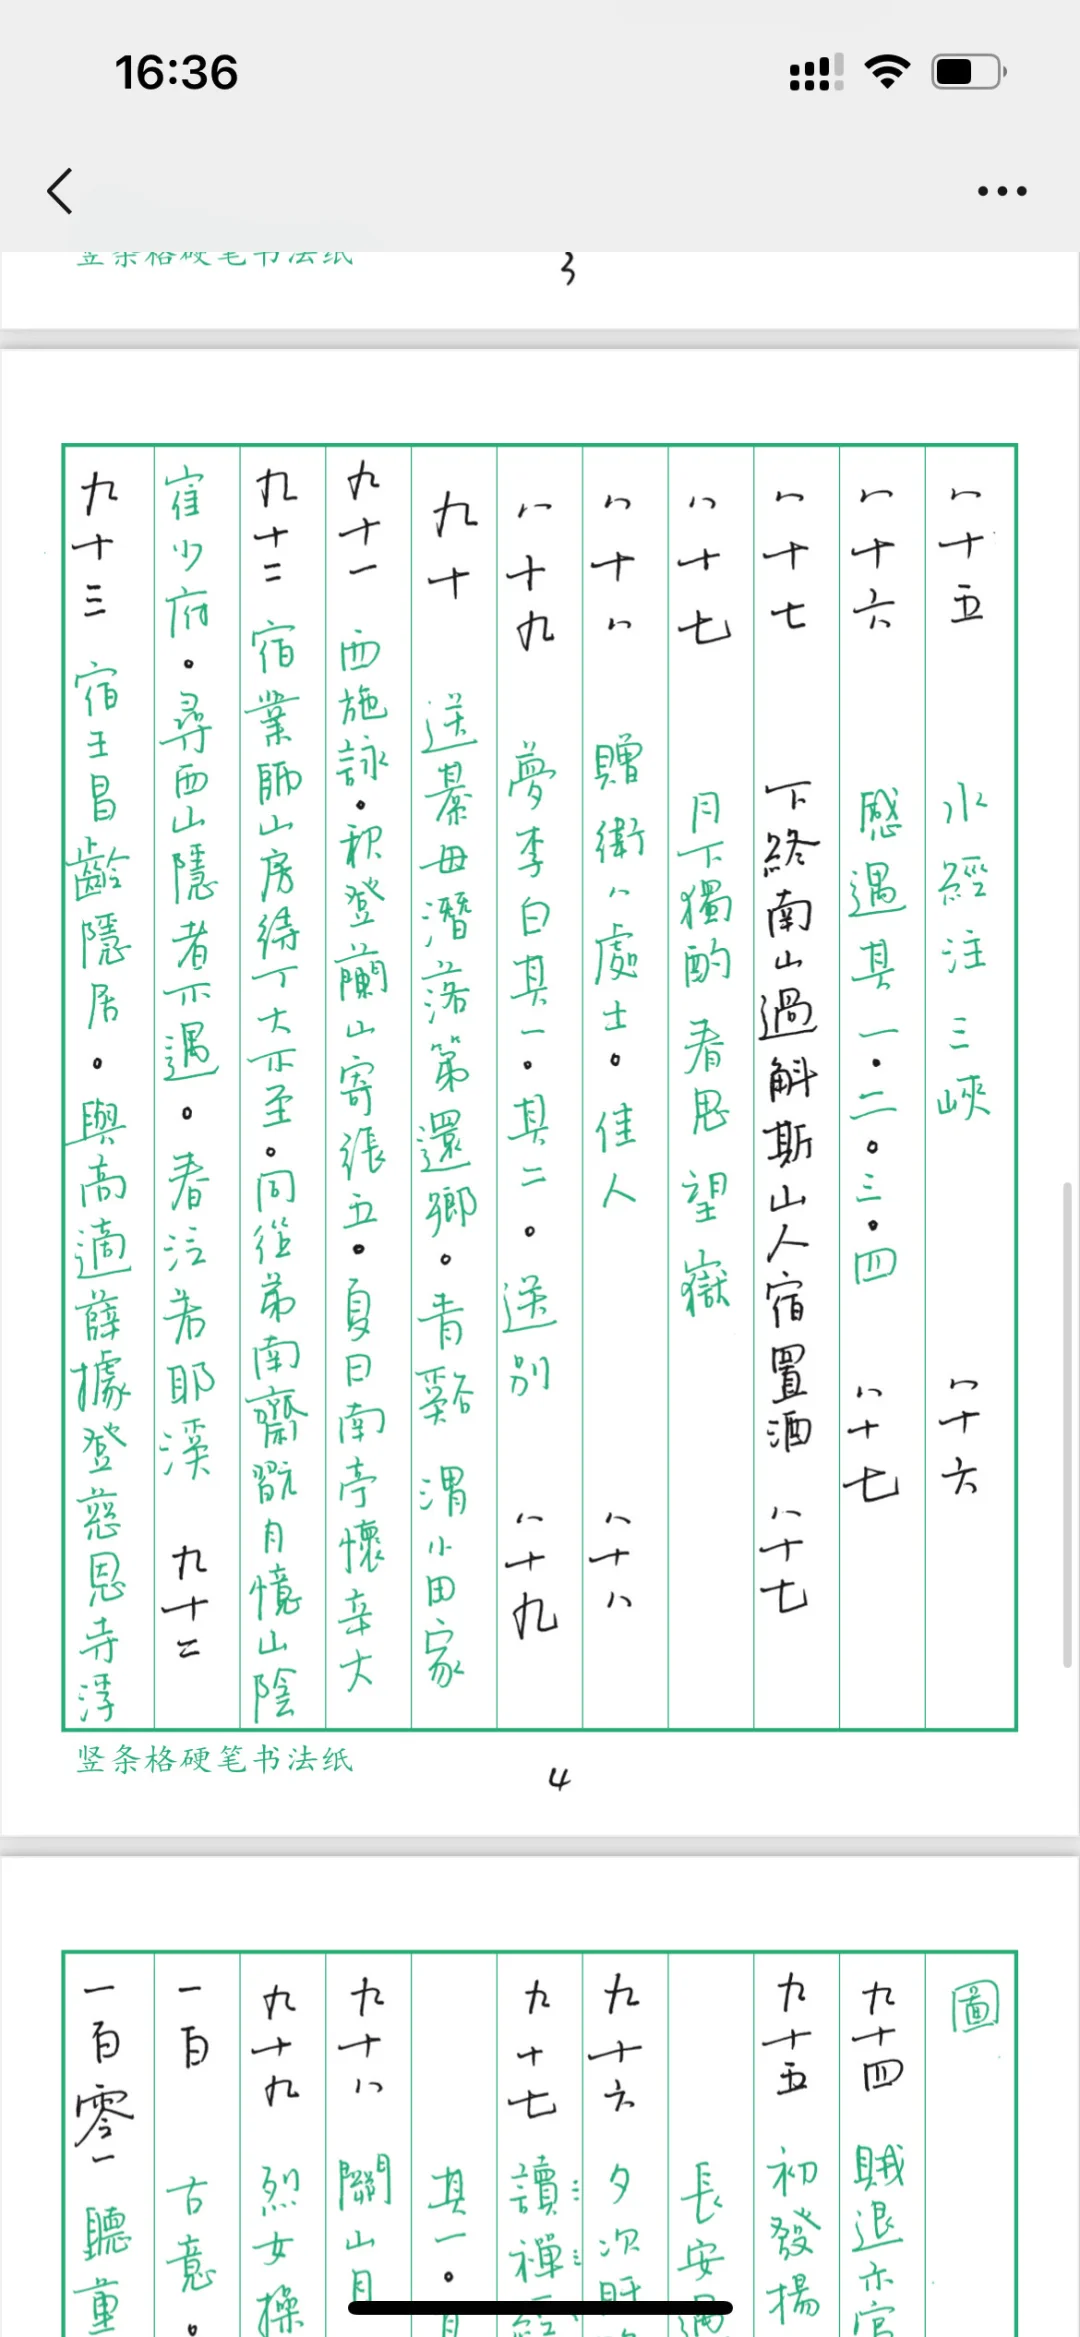 16:36
竖条格硬笔书法纸
3
八十五 水經注三峽 八十六
八十六 感遇其一·二·三·四 八十七
八十七 下終南山過斛斯山人宿置酒 八十七
八十七 月下獨酌 春思 望嶽
八十八 贈衛八處士。佳人 八十八
八十九 夢李白其一。其二。送別 八十九
九十 送綦毋潛落第還鄉。青谿 渭川田家
九十一 西施詠·秋登蘭山寄張五·夏日南亭懷辛大
九十二 宿業師山房待丁大不至。同從弟南齋翫月憶山陰
崔少府。尋西山隱者不遇。春泛若耶溪 九十二
九十三 宿王昌齡隱居。與高適薛據登慈恩寺浮
竖条格硬笔书法纸
4
圖
九十四 賊退示官
九十五 初發揚
長安遇
九十六 夕次盱
九十七 讀禪經
其一。
九十八 關山月
九十九 烈女操
一百 古意。
一百零一 聽董